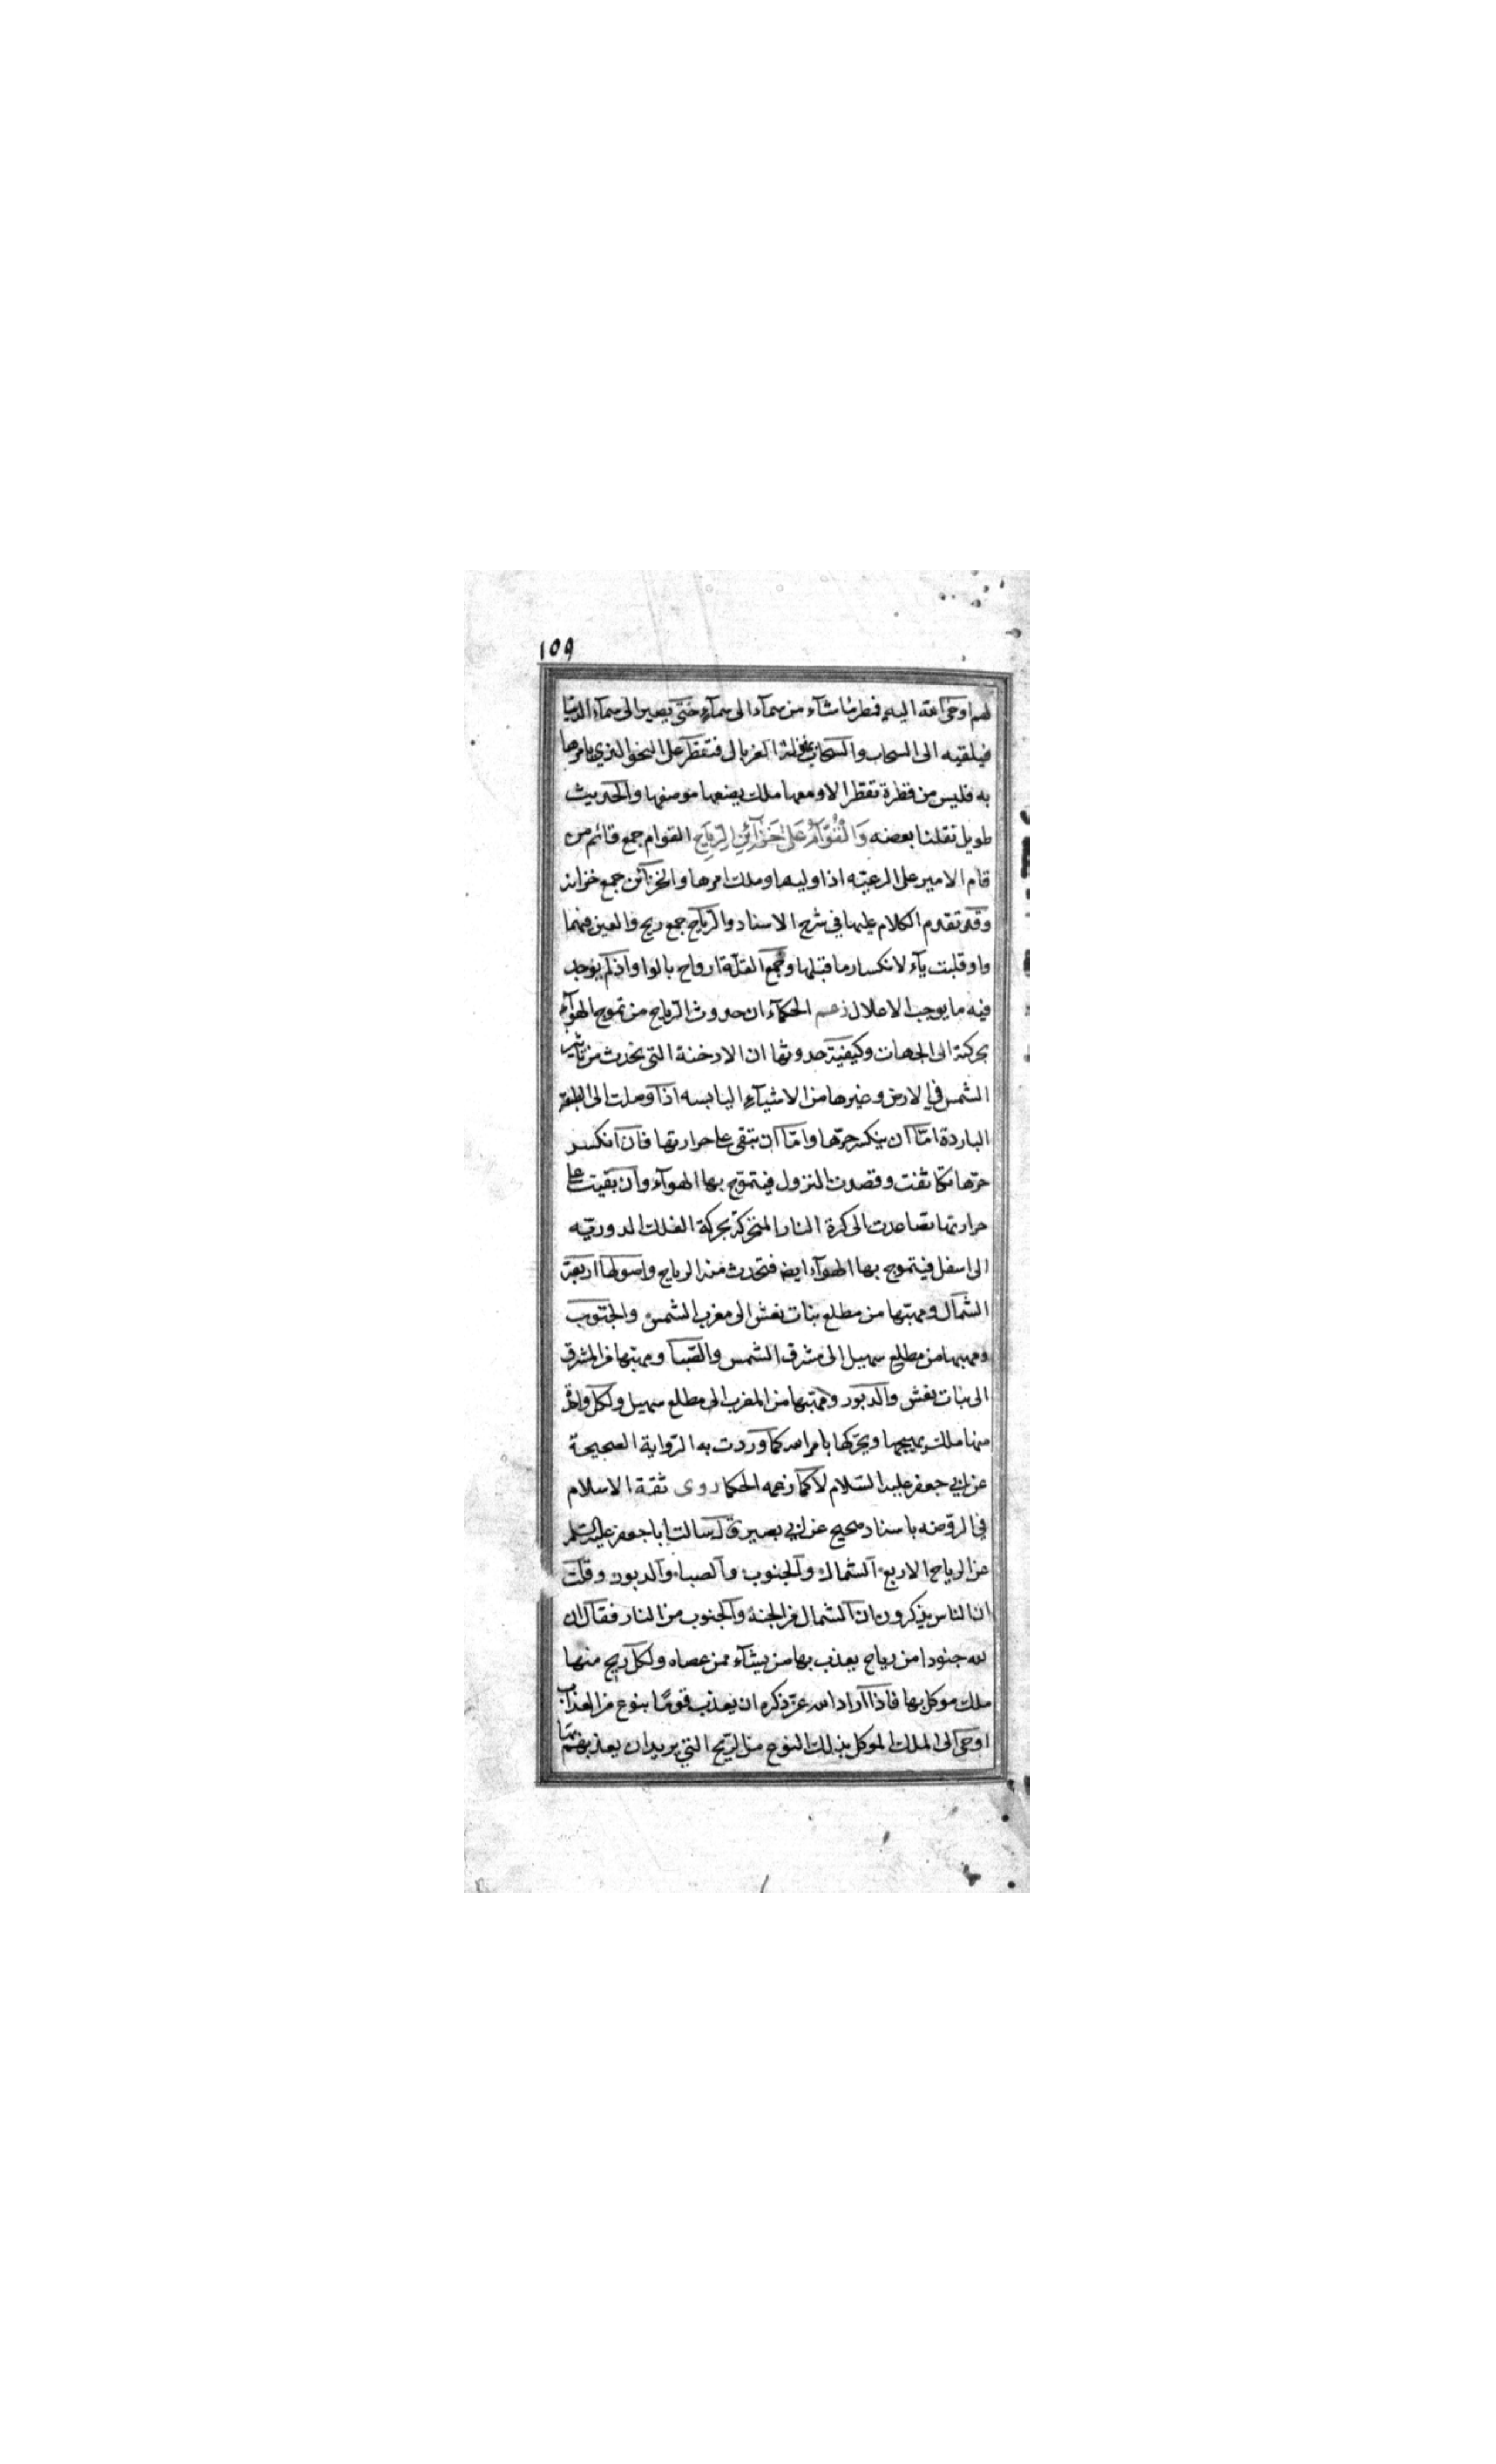 ١٥٩
لهم اوحى الله اليه فمطر ما شآء من سمآء الى سمآء حتى يصير الى سمآء الدنيا
فيلقيه الى السحاب والسحاب بمنزلة الغربال فتقطر على النحو الذي يامرها
به فليس من قطرة تقطر الا ومعها ملك يضعها موضعها والحديث
طويل نقلنا بعضه وَالْقُوَّامُ عَلىٰ خَزَآئِنِ الرِّيَاحِ القوام جمع قائم من
قام الامير على الرعيّه اذا وليها وملك امرها والخزآئن جمع خزانه
وقد تقدم الكلام عليها في شرح الاسناد والرياح جمع ريح والعين فيهما
واو قلبت يآء لانكسار ما قبلها وجمع القلّة ارواح بالواو اذ لم يوجد
فيه ما يوجب الاعلال زعم الحكمآء ان حدوث الرّياح من تموج الهوآء
بحركته الى الجهات وكيفية حدوثها ان الادخنة التى تحدث من تاثير
الشمس في الارض وغيرها من الاشيآء اليابسه اذا وصلت الى الطبقة
الباردة امّا ان ينكسر حرّها وامّا ان تبقى على حرارتها فان انكسر
حرّها تكاثفت وقصدت النزول فيتموّج بها الهوآء وان بقيت على
حرارتها تصاعدت الى كرة النار المتحركة بحركة الفلك الدوريّه
الى اسفل فيتموج بها الهوآء ايضا فتحدث منه الرياح واصولها اربعة
الشمال ومهبّها من مطلع بنات نعش الى مغرب الشمس والجنوب
ومهبها من مطلع سهيل الى مشرق الشمس والصّبا ومهبّها من المشرق
الى بنات نعش والدبور ومهبّها من المغرب الى مطلع سهيل ولكل واحد
منها ملك يهيجها ويحرّكها بامر الله كما وردت به الرّواية الصحيحة
عن ابي جعفر عليه السّلام لا كما زعمه الحكما روى ثقة الاسلام
في الروضه باسناد صحيح عن ابي بصير قال سالت ابا جعفر عليه السلم
عن الرياح الاربع الشمال والجنوب والصبا والدبور وقلت
ان الناس يذكرون ان الشمال من الجنة والجنوب من النار فقال ان
لله جنودا من رياح يعذب بها من يشآء ممن عصاه ولكل ريح منها
ملك موكل بها فاذا اراد الله عزّ ذكره ان يعذب قومًا بنوع من العذاب
اوحى الى الملك الموكل بذلك النوع من الرّيح التي يريد ان يعذبهم بها